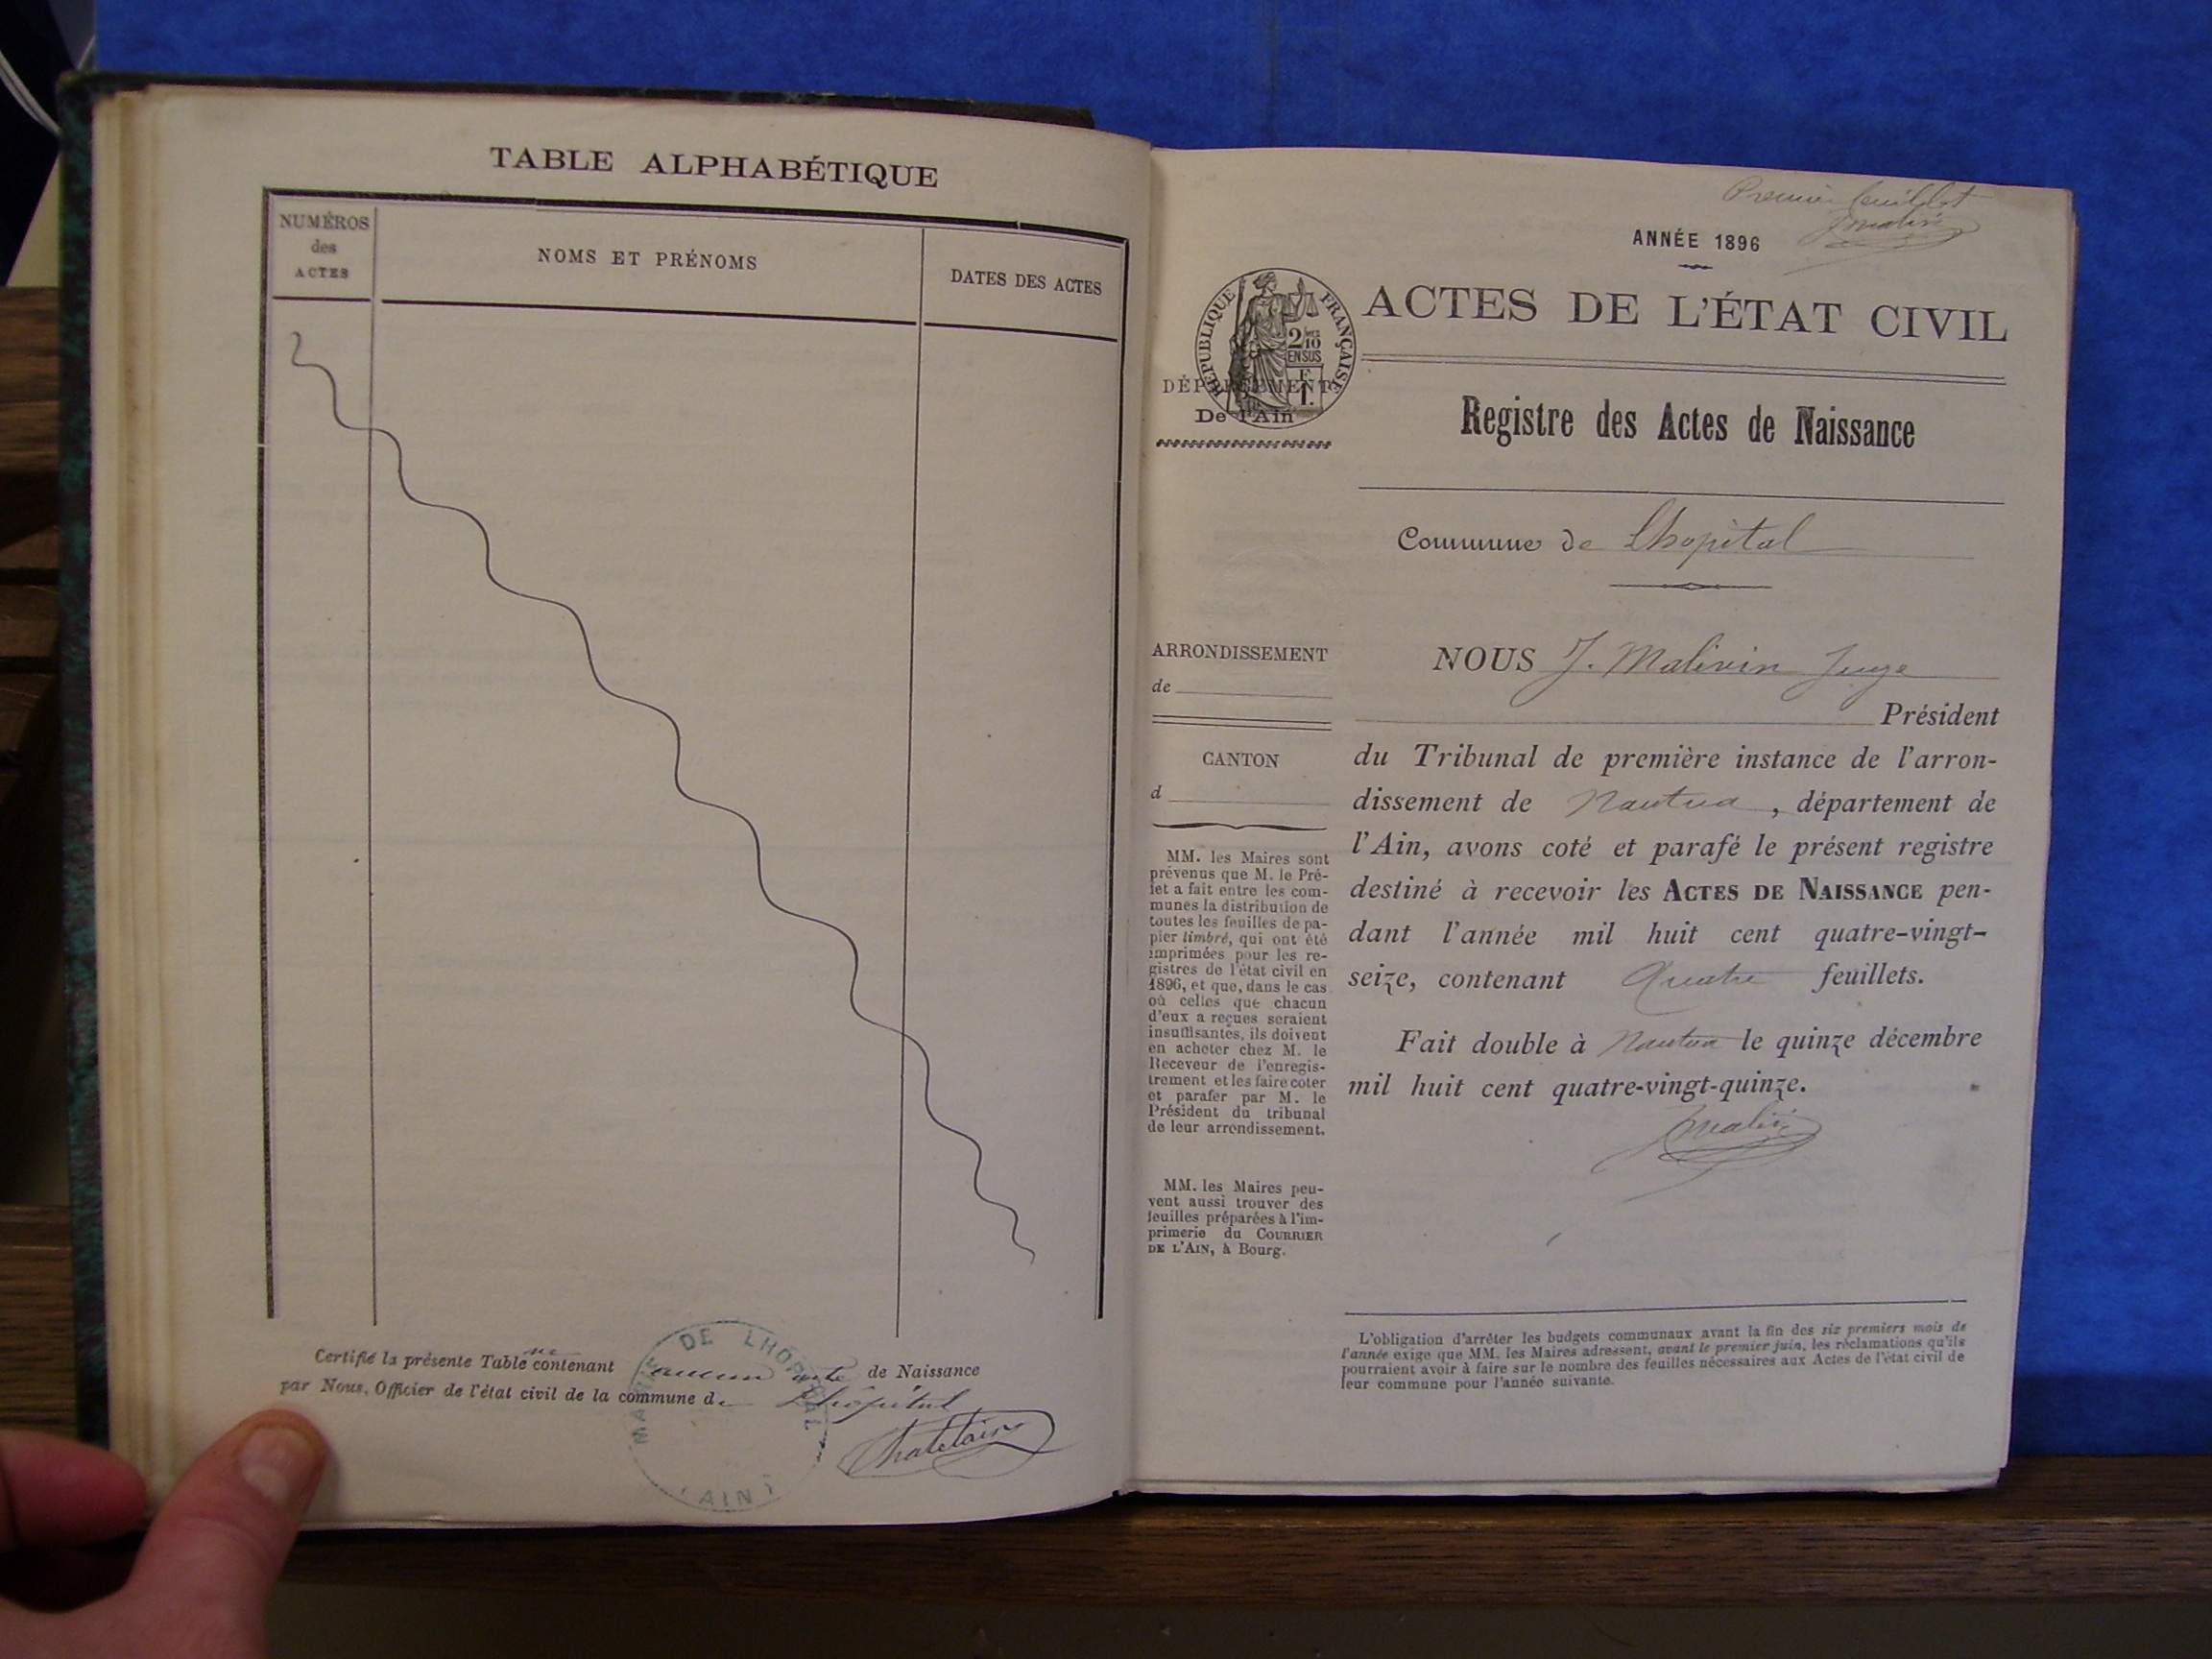 TABLE ALPHABÉTIQUE
NUMÉROS
des
ACTES
NOMS ET PRÉNOMS
DATES DES ACTES
Certifié la présente Table ne contenant aucun acte de Naissance
par Nous, Officier de l'état civil de la commune de Lhôpital
MAIRIE DE LHÔPITAL
(AIN)
Chatelain
Premier feuillet
ANNÉE 1896
RÉPUBLIQUE FRANÇAISE
2/10
EN SUS
F
1.
ACTES DE L'ÉTAT CIVIL
DÉPARTEMENT
De l'Ain
Registre des Actes de Naissance
Commune de Lhopital
ARRONDISSEMENT
de
CANTON
d
MM. les Maires sont
prévenus que M. le Pré-
fet a fait entre les com-
munes la distribution de
toutes les feuilles de pa-
pier timbré, qui ont été
imprimées pour les re-
gistres de l'état civil en
1896, et que, dans le cas
où celles que chacun
d'eux a reçues seraient
insuffisantes, ils doivent
en acheter chez M. le
Receveur de l'enregis-
trement et les faire coter
et parafer par M. le
Président du tribunal
de leur arrondissement.
MM. les Maires peu-
vent aussi trouver des
feuilles préparées à l'im-
primerie du COURRIER
DE L'AIN, à Bourg.
NOUS J. Malivin Juge
Président
du Tribunal de première instance de l'arron-
dissement de Nantua, département de
l'Ain, avons coté et parafé le présent registre
destiné à recevoir les ACTES DE NAISSANCE pen-
dant l'année mil huit cent quatre-vingt-
seize, contenant Quatre feuillets.
Fait double à Nantua le quinze décembre
mil huit cent quatre-vingt-quinze.
L'obligation d'arrêter les budgets communaux avant la fin des six premiers mois de
l'année exige que MM. les Maires adressent, avant le premier juin, les réclamations qu'ils
pourraient avoir à faire sur le nombre des feuilles nécessaires aux Actes de l'état civil de
leur commune pour l'année suivante.